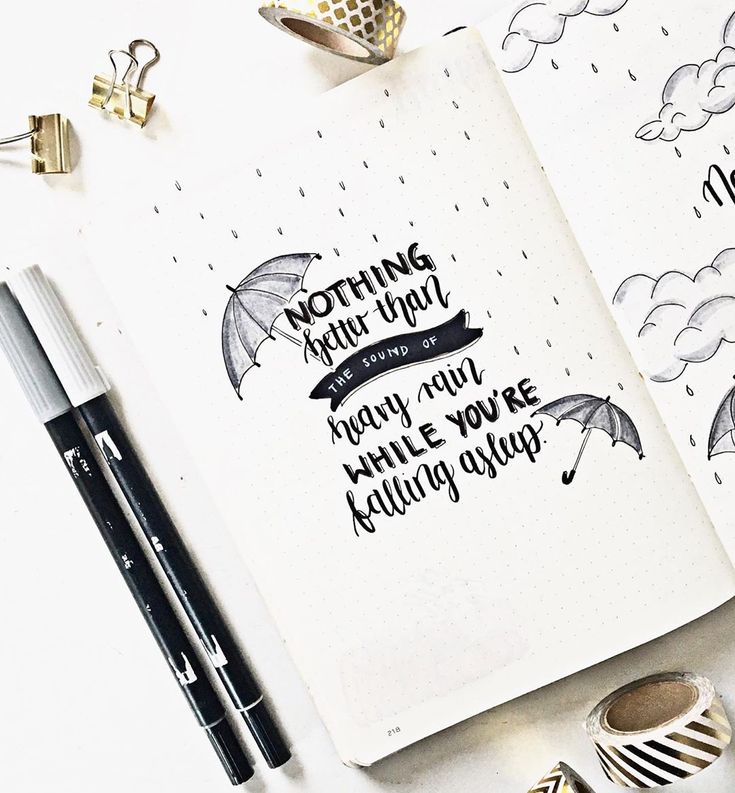 NOTHING
better than
THE SOUND OF
heavy rain
WHILE YOU'RE
falling asleep.
218